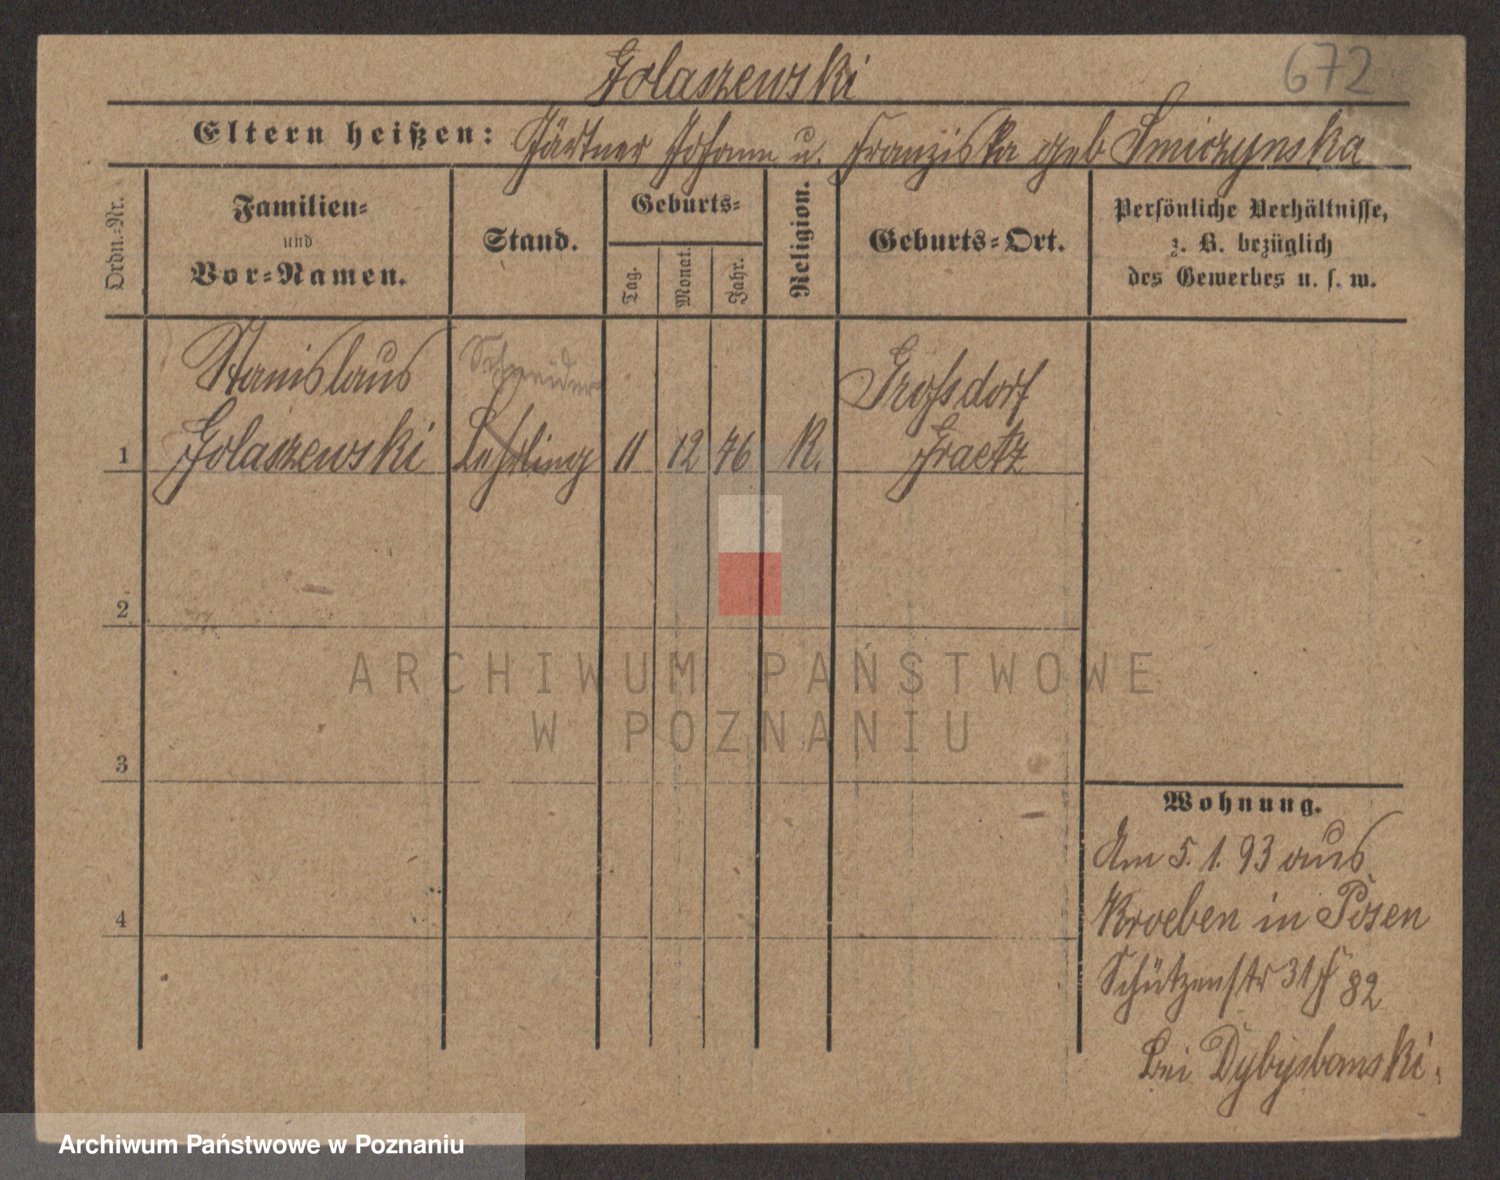 672
Golaszewski
Eltern heißen: Gärtner Johann u. Franziska geb Smiczynska
Ordn.-Nr.
Familien-
und
Vor-Namen.
Stand.
Geburts-
Tag.
Monat.
Jahr.
Religion.
Geburts-Ort.
Persönliche Verhältnisse,
z. B. bezüglich
des Gewerbes u. s. w.
Stanislaus
Schneider
Grossdorf
1 Golaszewski Lehrling 11 12 76 K. Graetz
2
3
4
Wohnung.
Am 5. 1. 93 aus
Kroeben in Posen
Schützenstr 31 82
bei
ARCHIWUM PAŃSTWOWE
W POZNANIU
Archiwum Państwowe w Poznaniu